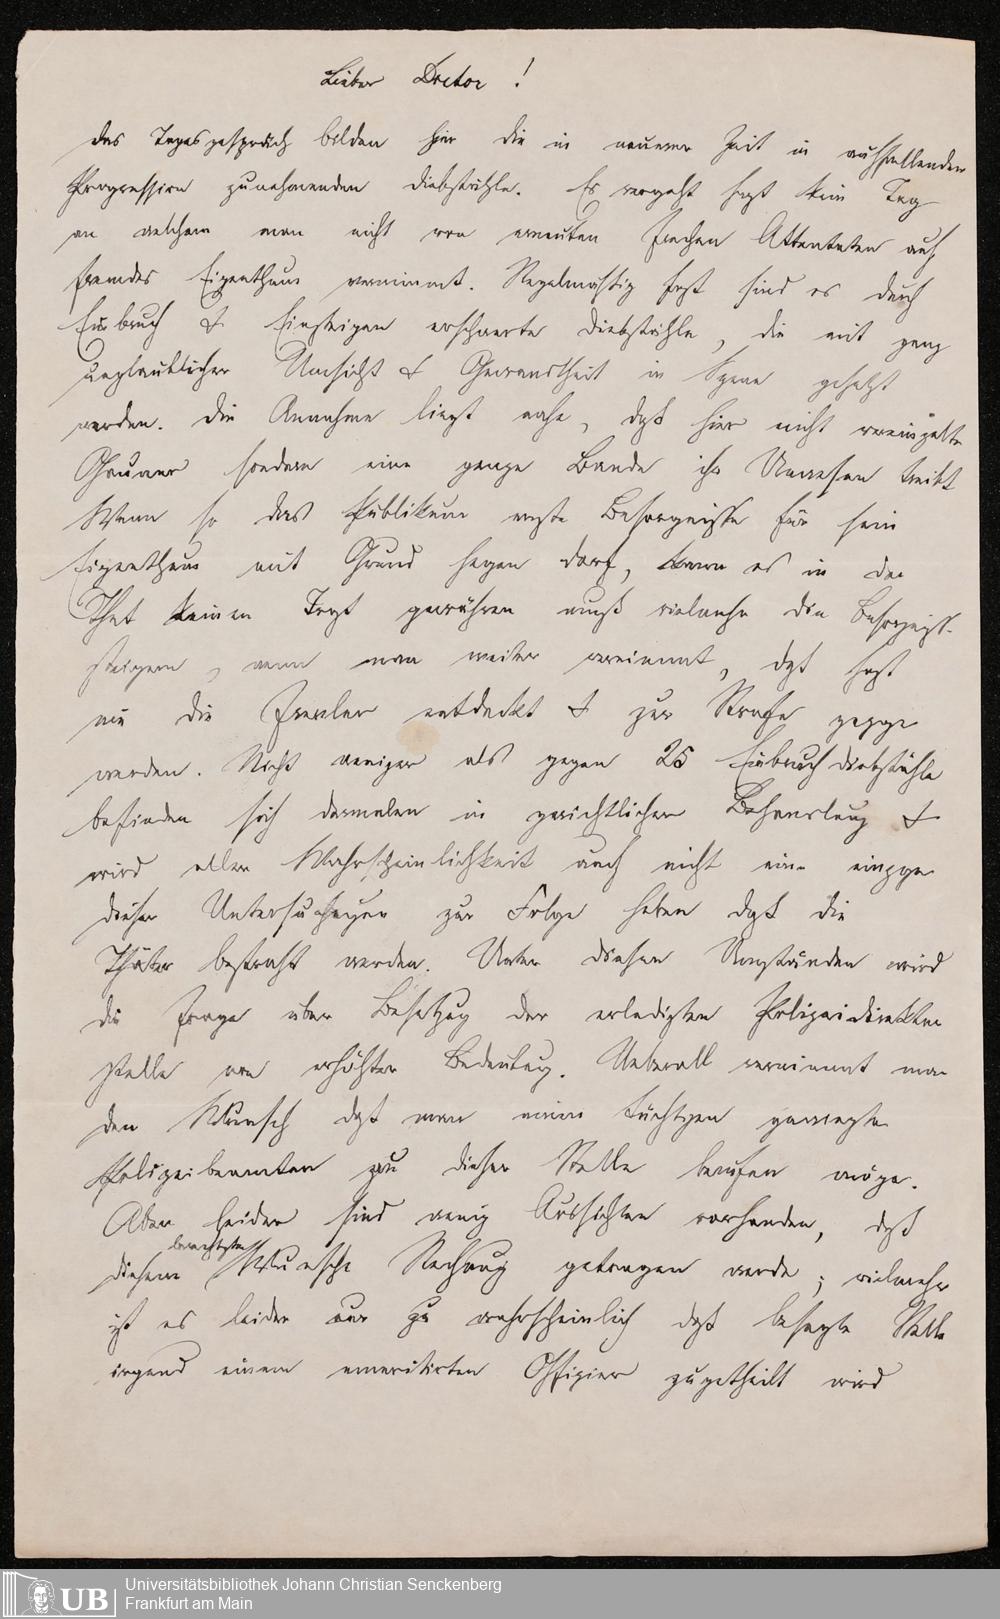 Lieber Doctor!
Das Tagesgespräch bilden hier die in neuerer Zeit in auffallenden
Progression zunehmenden Diebstähle. Es vergeht fast kein Tag
an welchem man nicht von erneuten frechen Attentaten auf
fremdes Eigenthum vernimmt. Regelmäßig fast sind es durch
Einbruch & Einsteigen erschwerte Diebstähle, die mit ganz
unglaublicher Umsicht & Gewandtheit in Szene gesetzt
werden. Die Annahme liegt nahe, daß hier nicht vereinzelte
Gauner sondern eine ganze Bande ihr Unwesen treibt
Wenn so das Publikum Besorgniße für sein
Eigenthum mit Grund hegen darf, kann es in der
That keinen Trost gewähren muß vielmehr die Besorgniß
steigern, wenn man weiter vernimmt, daß fast
nie die Frevler entdeckt & zur Strafe gezogen
werden. Nicht weniger als gegen 25 Einbruchdiebstähle
befinden sich dermalen in gerichtlicher Behandlung &
wird aller Wahrscheinlichkeit nach nicht eine einzige
dieser Untersuchungen zur Folge haben daß die
Thäter bestraft werden. Unter diesen Umständen wird
die Frage über Besetzung der erledigten Polizeidirektor
stelle von erhöhter Bedeutung. Ueberall vernimmt man
den Wunsch daß man einen tüchtigen gewiegten
Polizeibeamten zu dieser Stelle berufen möge.
Aber leider sind wenig Aussichten vorhanden, daß
diesem berechtigten Wunsche Rechnung getragen werde; vielmehr
ist es leider nur zu wahrscheinlich daß besagte Stelle
irgend einem emeritirten Offizier zugetheilt wird
UB
Universitätsbibliothek Johann Christian Senckenberg
Frankfurt am Main